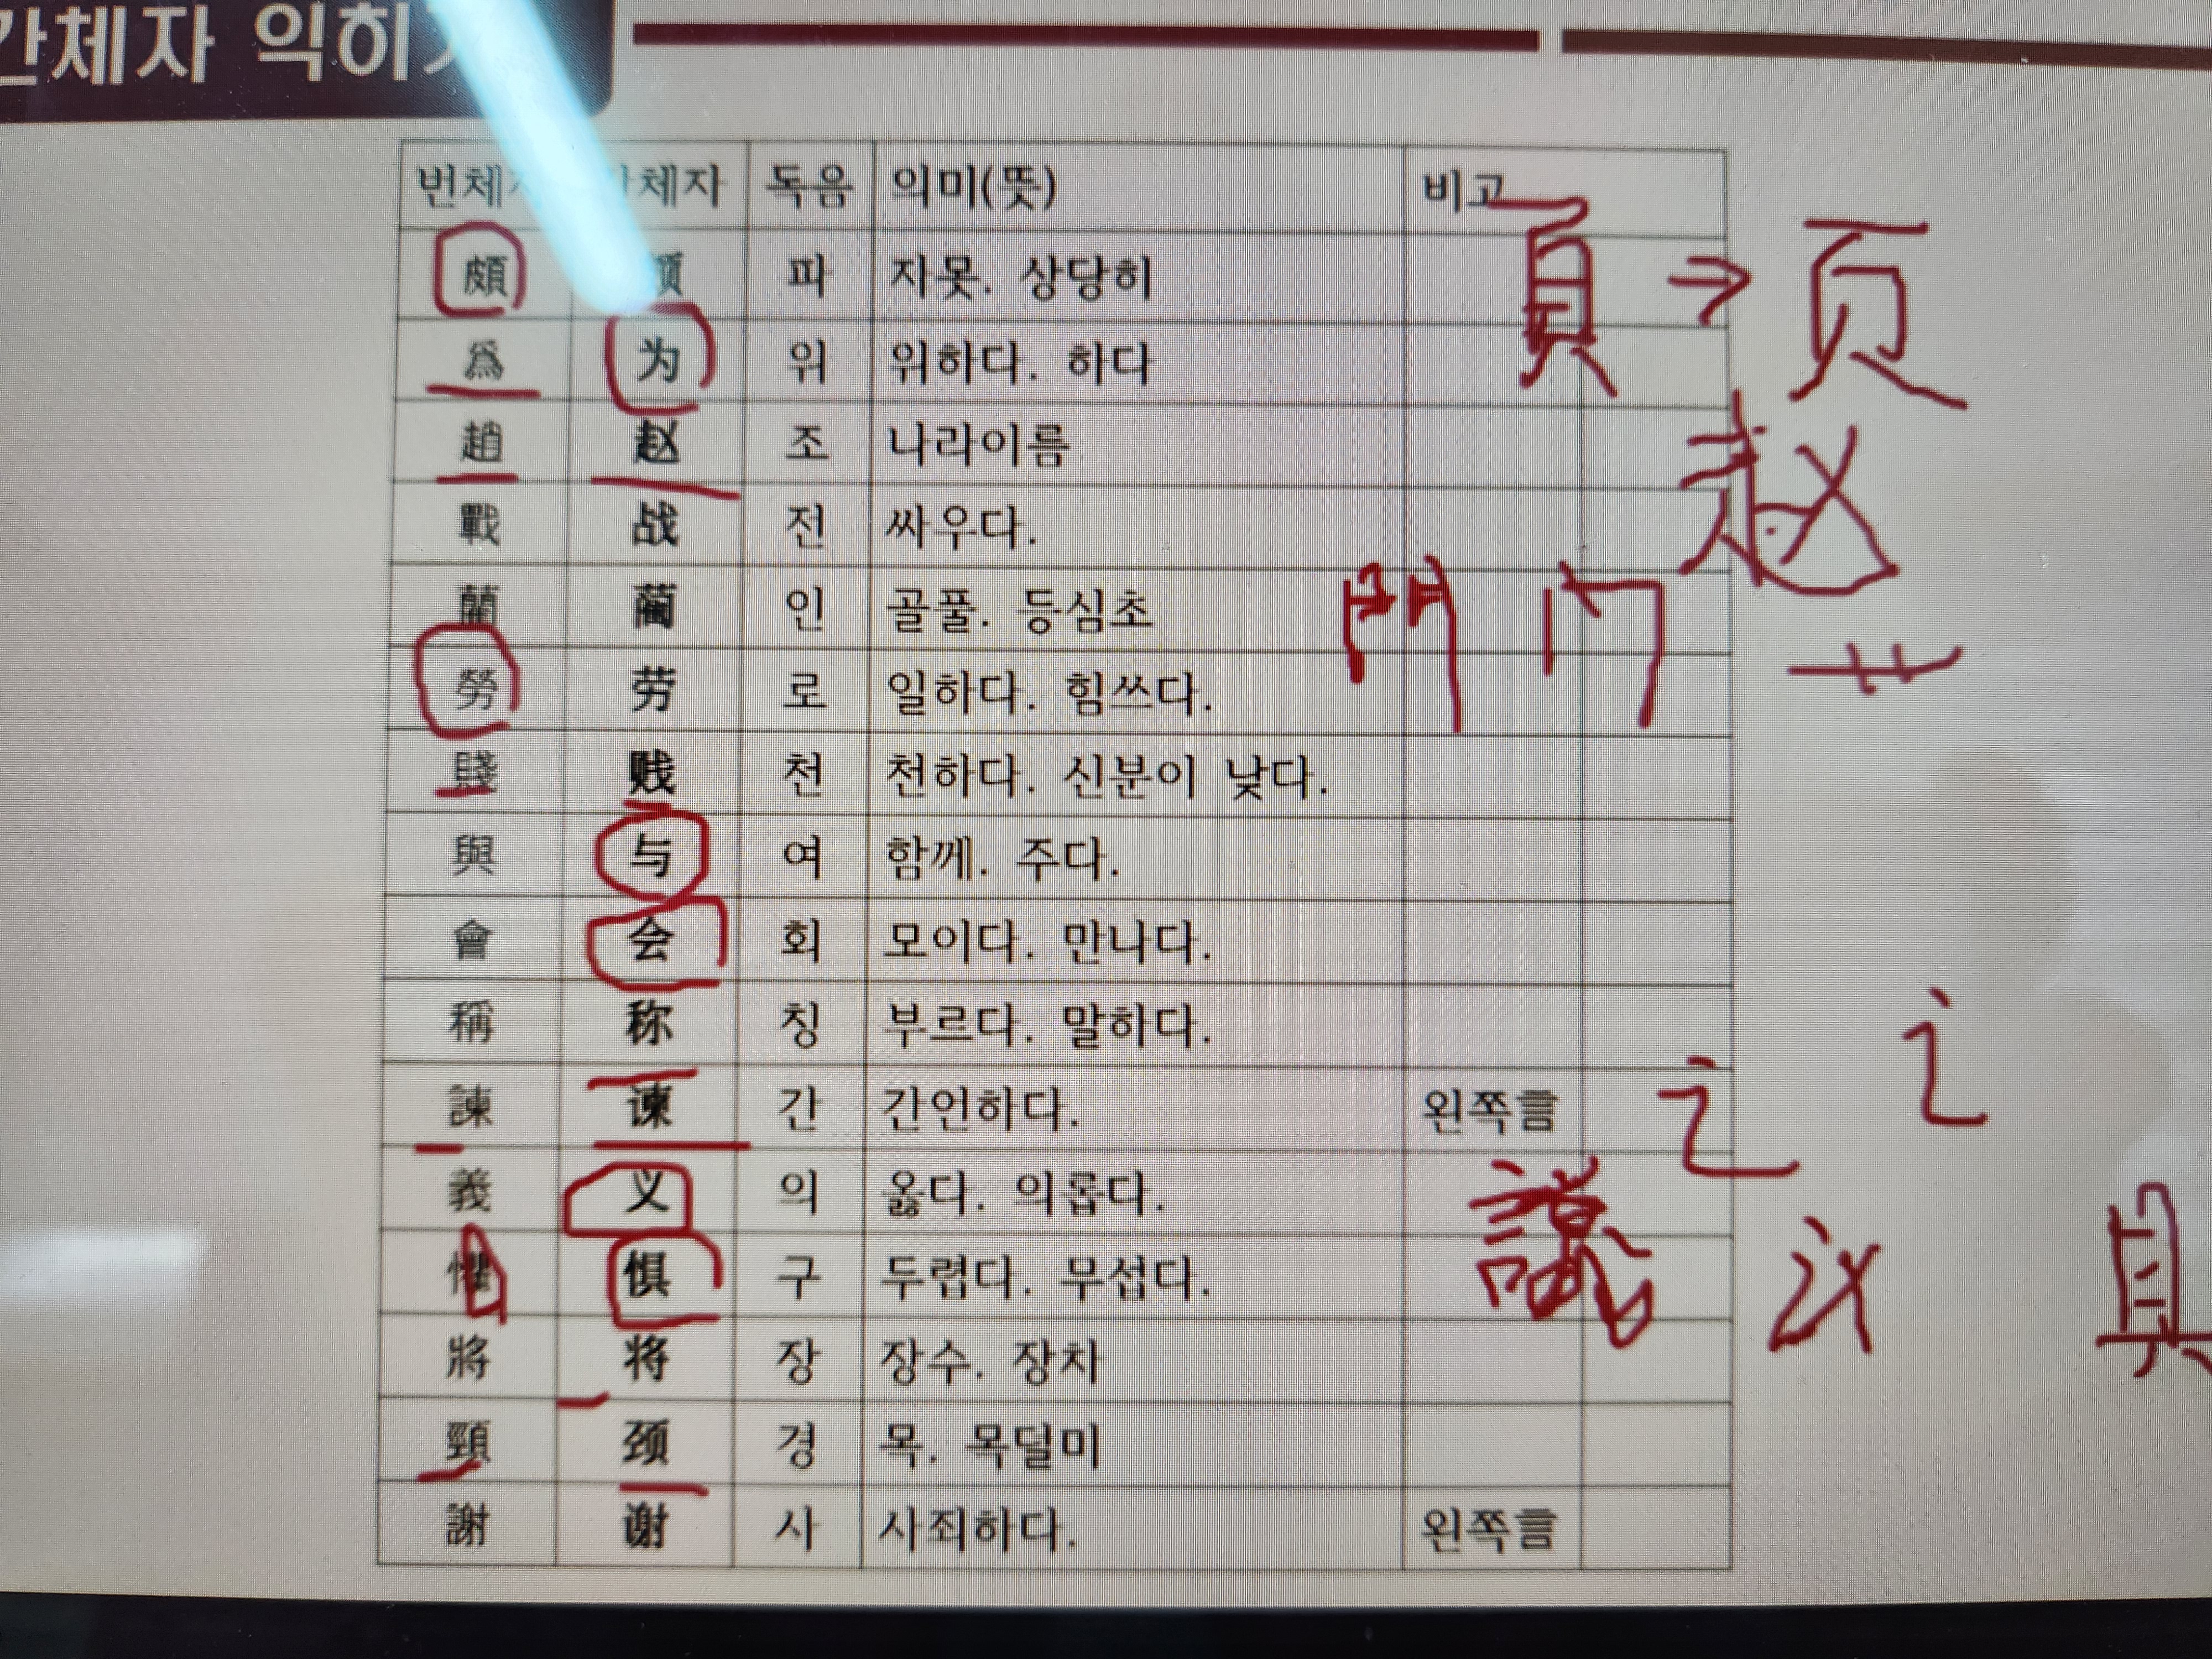 간체자 익히
번체 체자 독음 의미(뜻) 비고
頗 颇 파 자못. 상당히
爲 为 위 위하다. 하다
趙 赵 조 나라이름
戰 战 전 싸우다.
藺 蔺 인 골풀. 등심초
勞 劳 로 일하다. 힘쓰다.
賤 贱 천 천하다. 신분이 낮다.
與 与 여 함께. 주다.
會 会 회 모이다. 만나다.
稱 称 칭 부르다. 말하다.
諫 谏 간 간언하다. 왼쪽言
義 义 의 옳다. 의롭다.
懼 惧 구 두렵다. 무섭다.
將 将 장 장수. 장차
頸 颈 경 목. 목덜미
謝 谢 사 사죄하다. 왼쪽言
頁 → 页
赵
門 门 艹
讠 讠
議 议 具